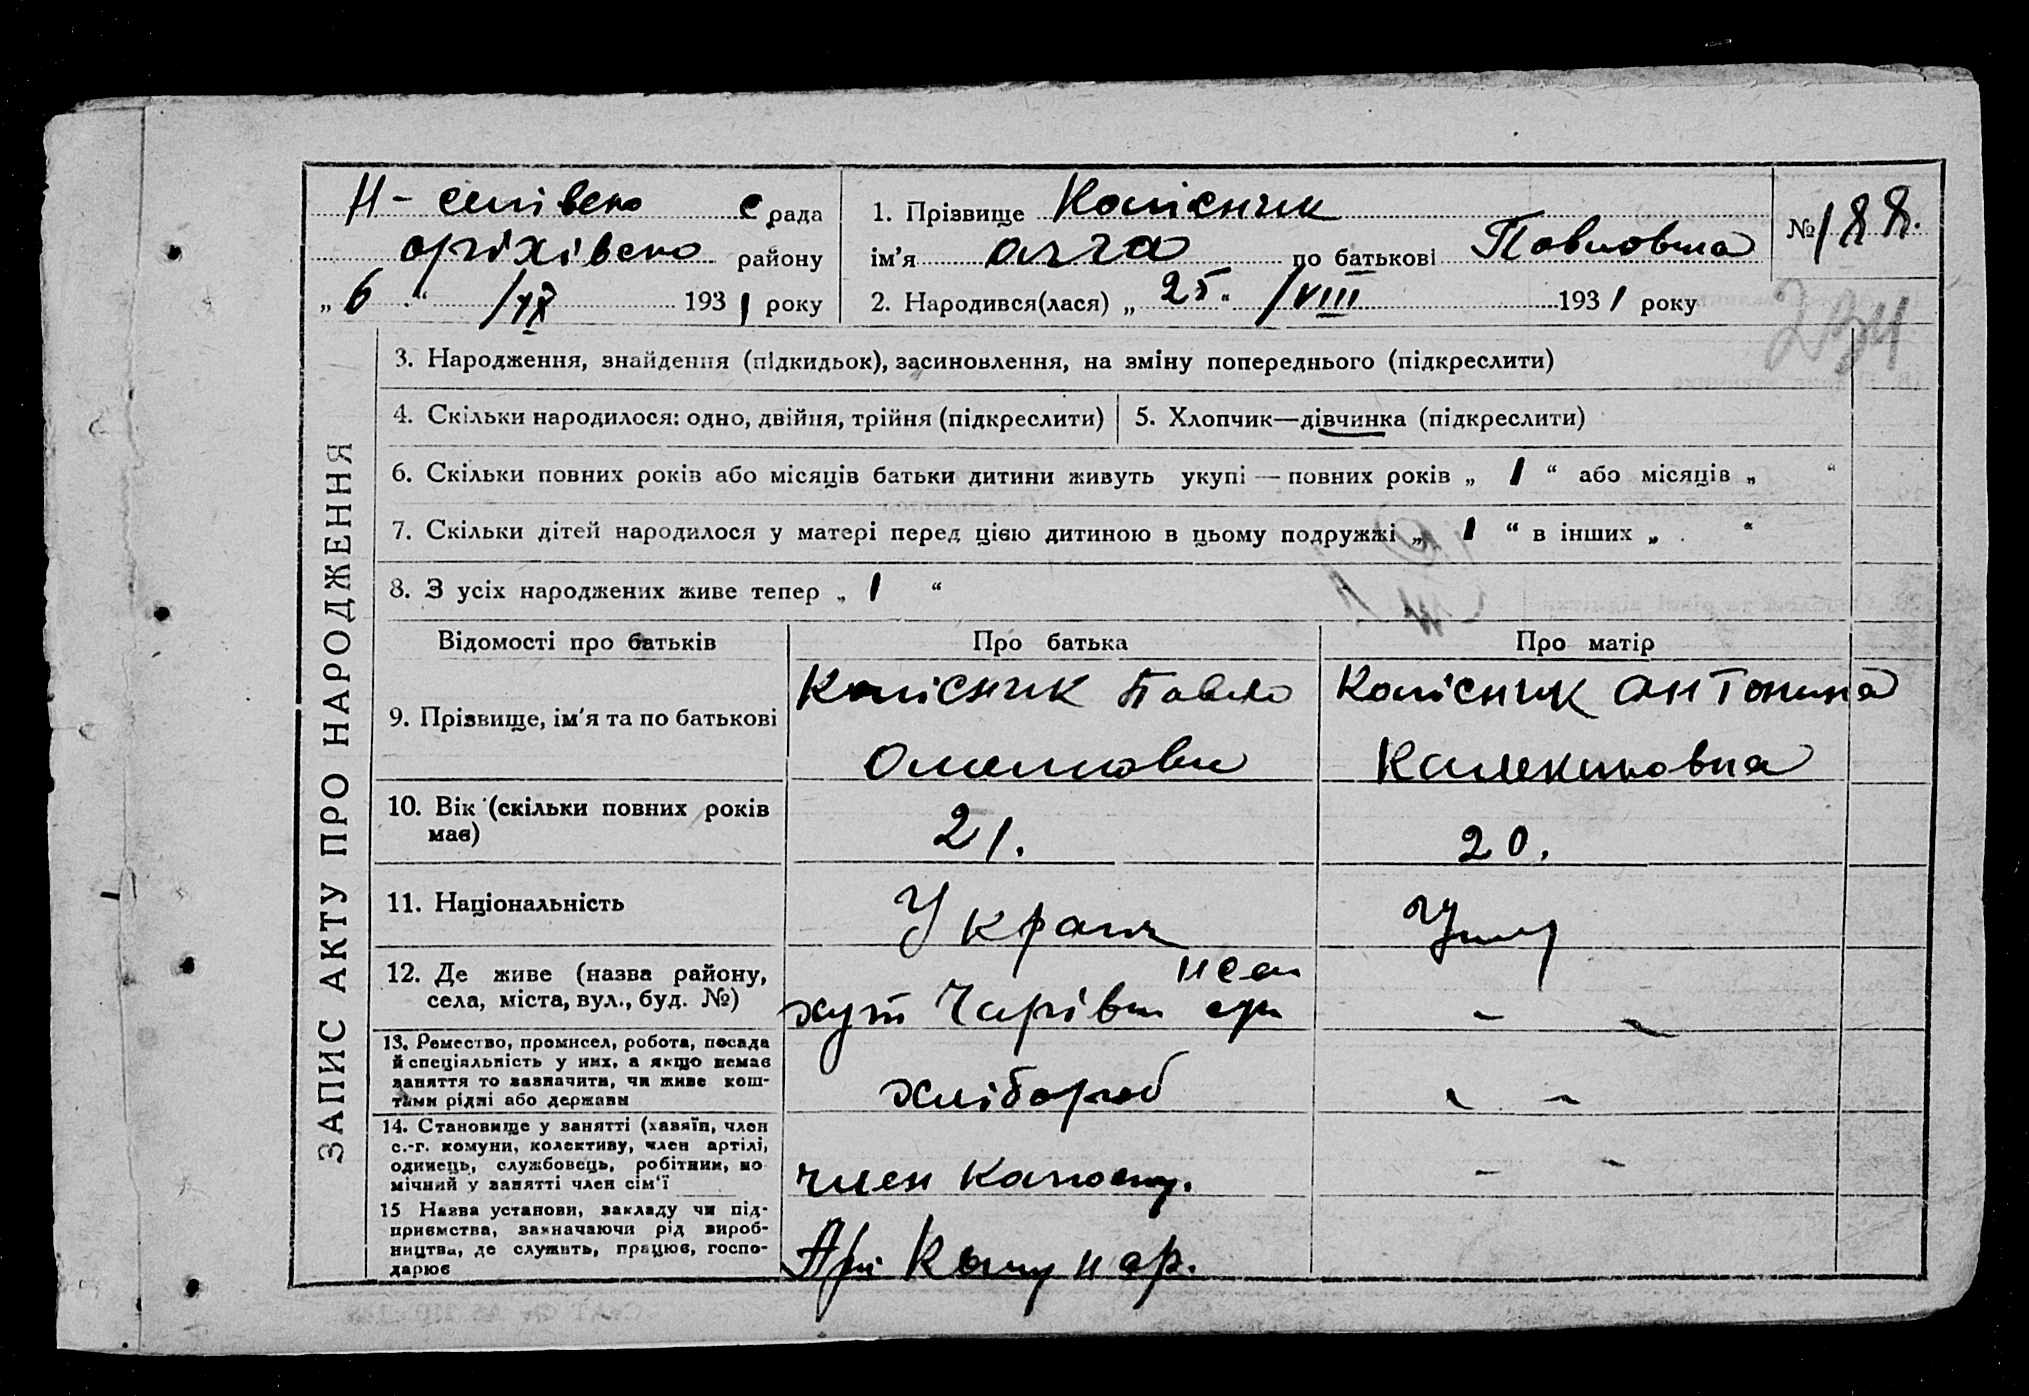 Н- селівсько с рада
оріхівсько району
„ 6 “ /IX 1931 року
1. Прізвище Колісник
ім'я по батькові Павловна
2. Народився(лася) „ 25 “ /VIII 1931 року
№ 188.
234
ЗАПИС АКТУ ПРО НАРОДЖЕННЯ
3. Народження, знайдення (підкидьок), засиновлення, на зміну попереднього (підкреслити)
4. Скільки народилося: одно, двійня, трійня (підкреслити)
5. Хлопчик—дівчинка (підкреслити)
6. Скільки повних років або місяців батьки дитини живуть укупі — повних років „ 1 “ або місяців „ “
7. Скільки дітей народилося у матері перед цією дитиною в цьому подружжі „ 1 “ в інших „ “
8. З усіх народжених живе тепер „ 1 “
Відомості про батьків Про батька Про матір
9. Прізвище, ім'я та по батькові
Колісник Павло
Колісник Антонина
10. Вік (скільки повних років
має)
21.
20.
11. Національність
Україн
12. Де живе (назва району,
села, міста, вул., буд. №)
хут Чарівн
13. Ремество, промисел, робота, посада
й спеціяльність у них, а якщо немає
заняття то зазначити, чи живе кош-
тами рідні або держави
хлібороб
14. Становище у занятті (хазяїн, член
с.-г. комуни, колективу, член артілі,
одинець, службовець, робітник, по
мічний у занятті член сім'ї
член
15 Назва установи, закладу чи під-
приємства, зазначаючи рід вироб-
ництва, де служить, працює, госпо-
дарює
Комунар.